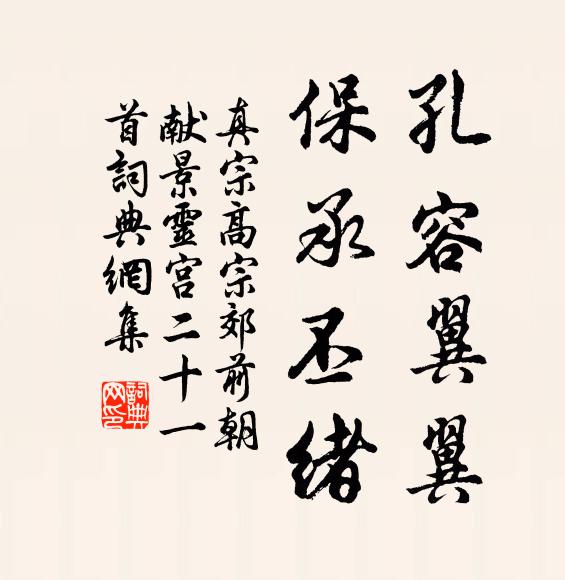 孔容翼翼
保承丕緒
真宗高宗郊前朝
献景靈宮二十一
首詞典網集
詞典网印